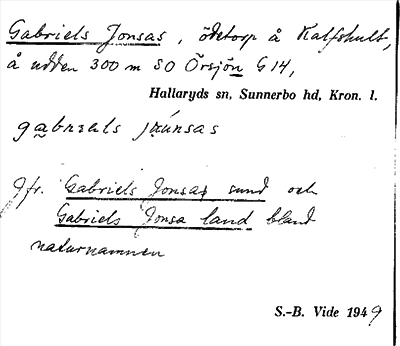 Gabriels Jonsas, ödetorp å Kalfshult,
å udden 300 m SO Örsjön G 14,
Hallaryds sn, Sunnerbo hd, Kron. l.
gabrɪals jɷnsas
Jfr. Gabriels Jonsas sund och
Gabriels Jonsa land bland
naturnamnen
S.-B. Vide 1949